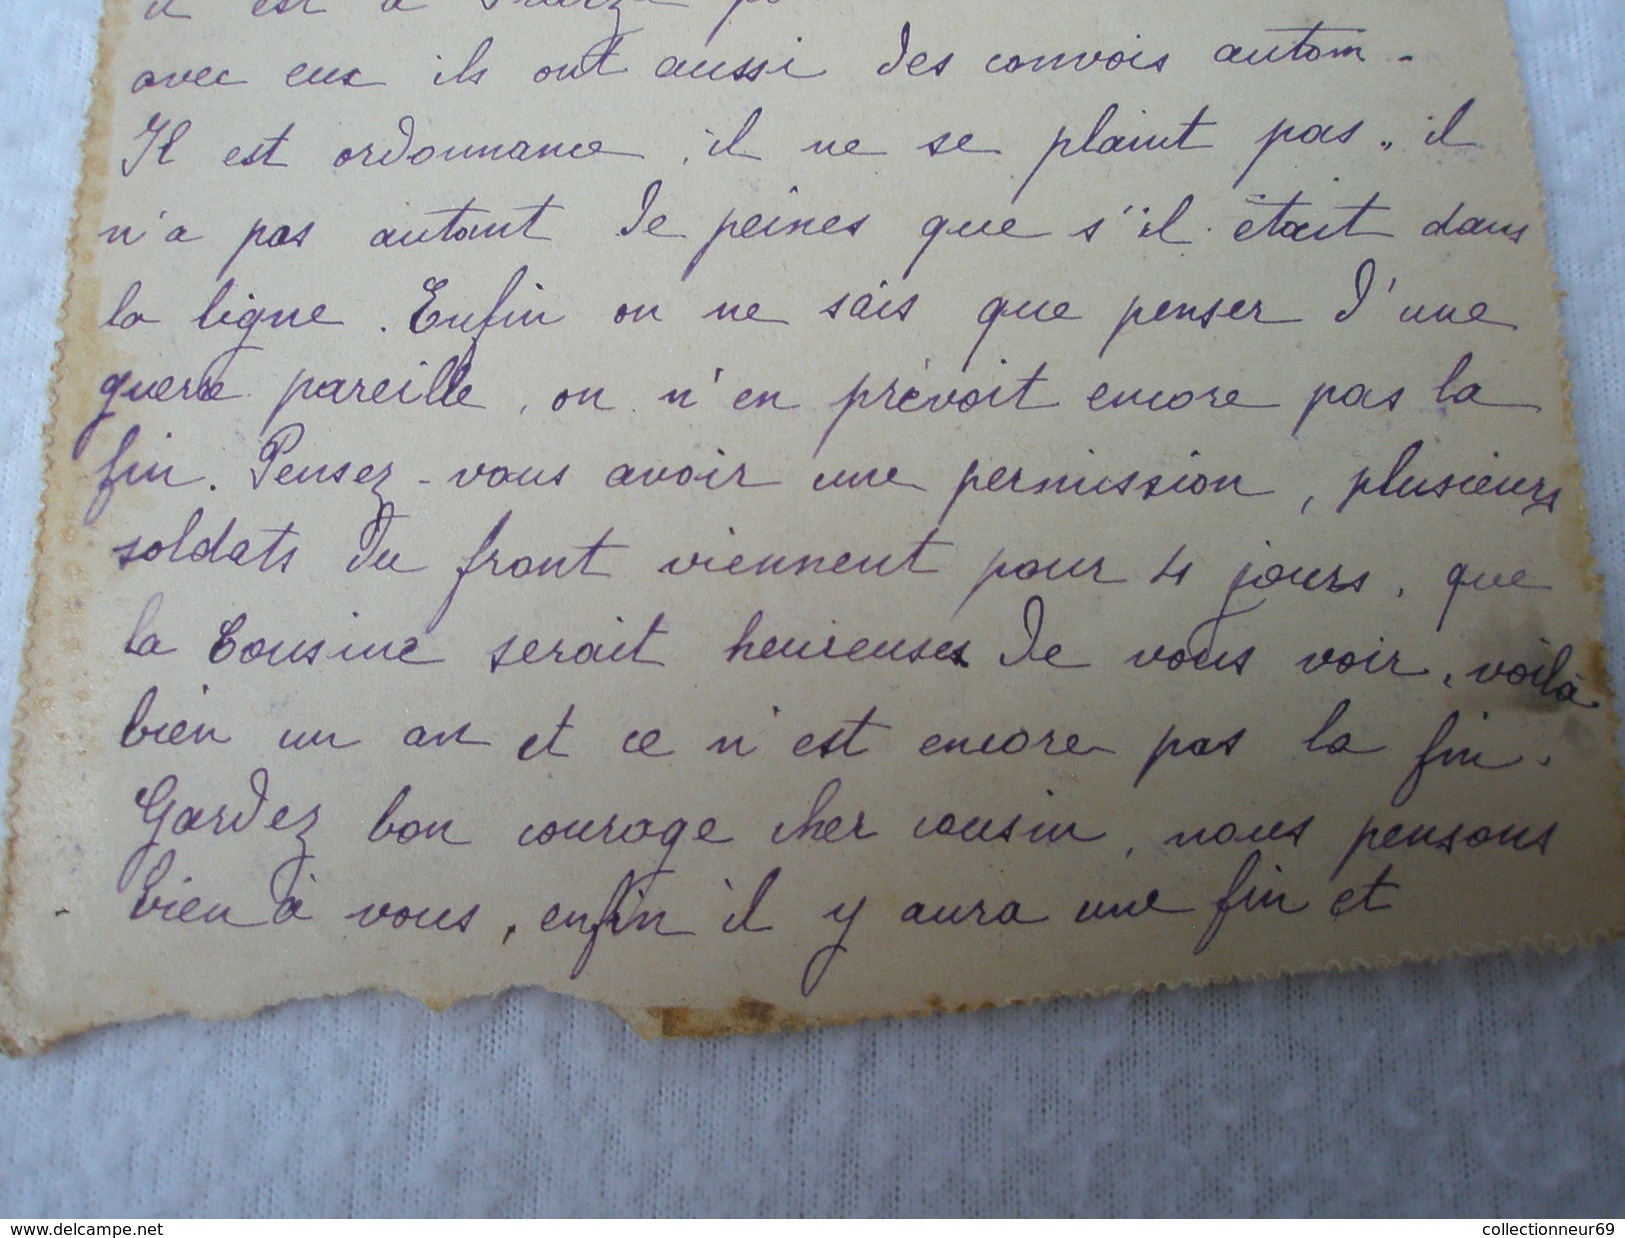 il est à
avec eux ils ont aussi des convois autom -
Il est ordonnance, il ne se plaint pas, il
n'a pas autant de peines que s'il était dans
la ligne. Enfin on ne sais que penser d'une
guerre pareille, on n'en prévoit encore pas la
fin. Pensez-vous avoir une permission, plusieurs
soldats du front viennent pour 4 jours, que
la Cousine serait heureuses de vous voir, voilà
bien un an et ce n'est encore pas la fin.
Gardez bon courage cher cousin, nous pensons
bien à vous, enfin il y aura une fin et
www.delcampe.net
collectionneur69